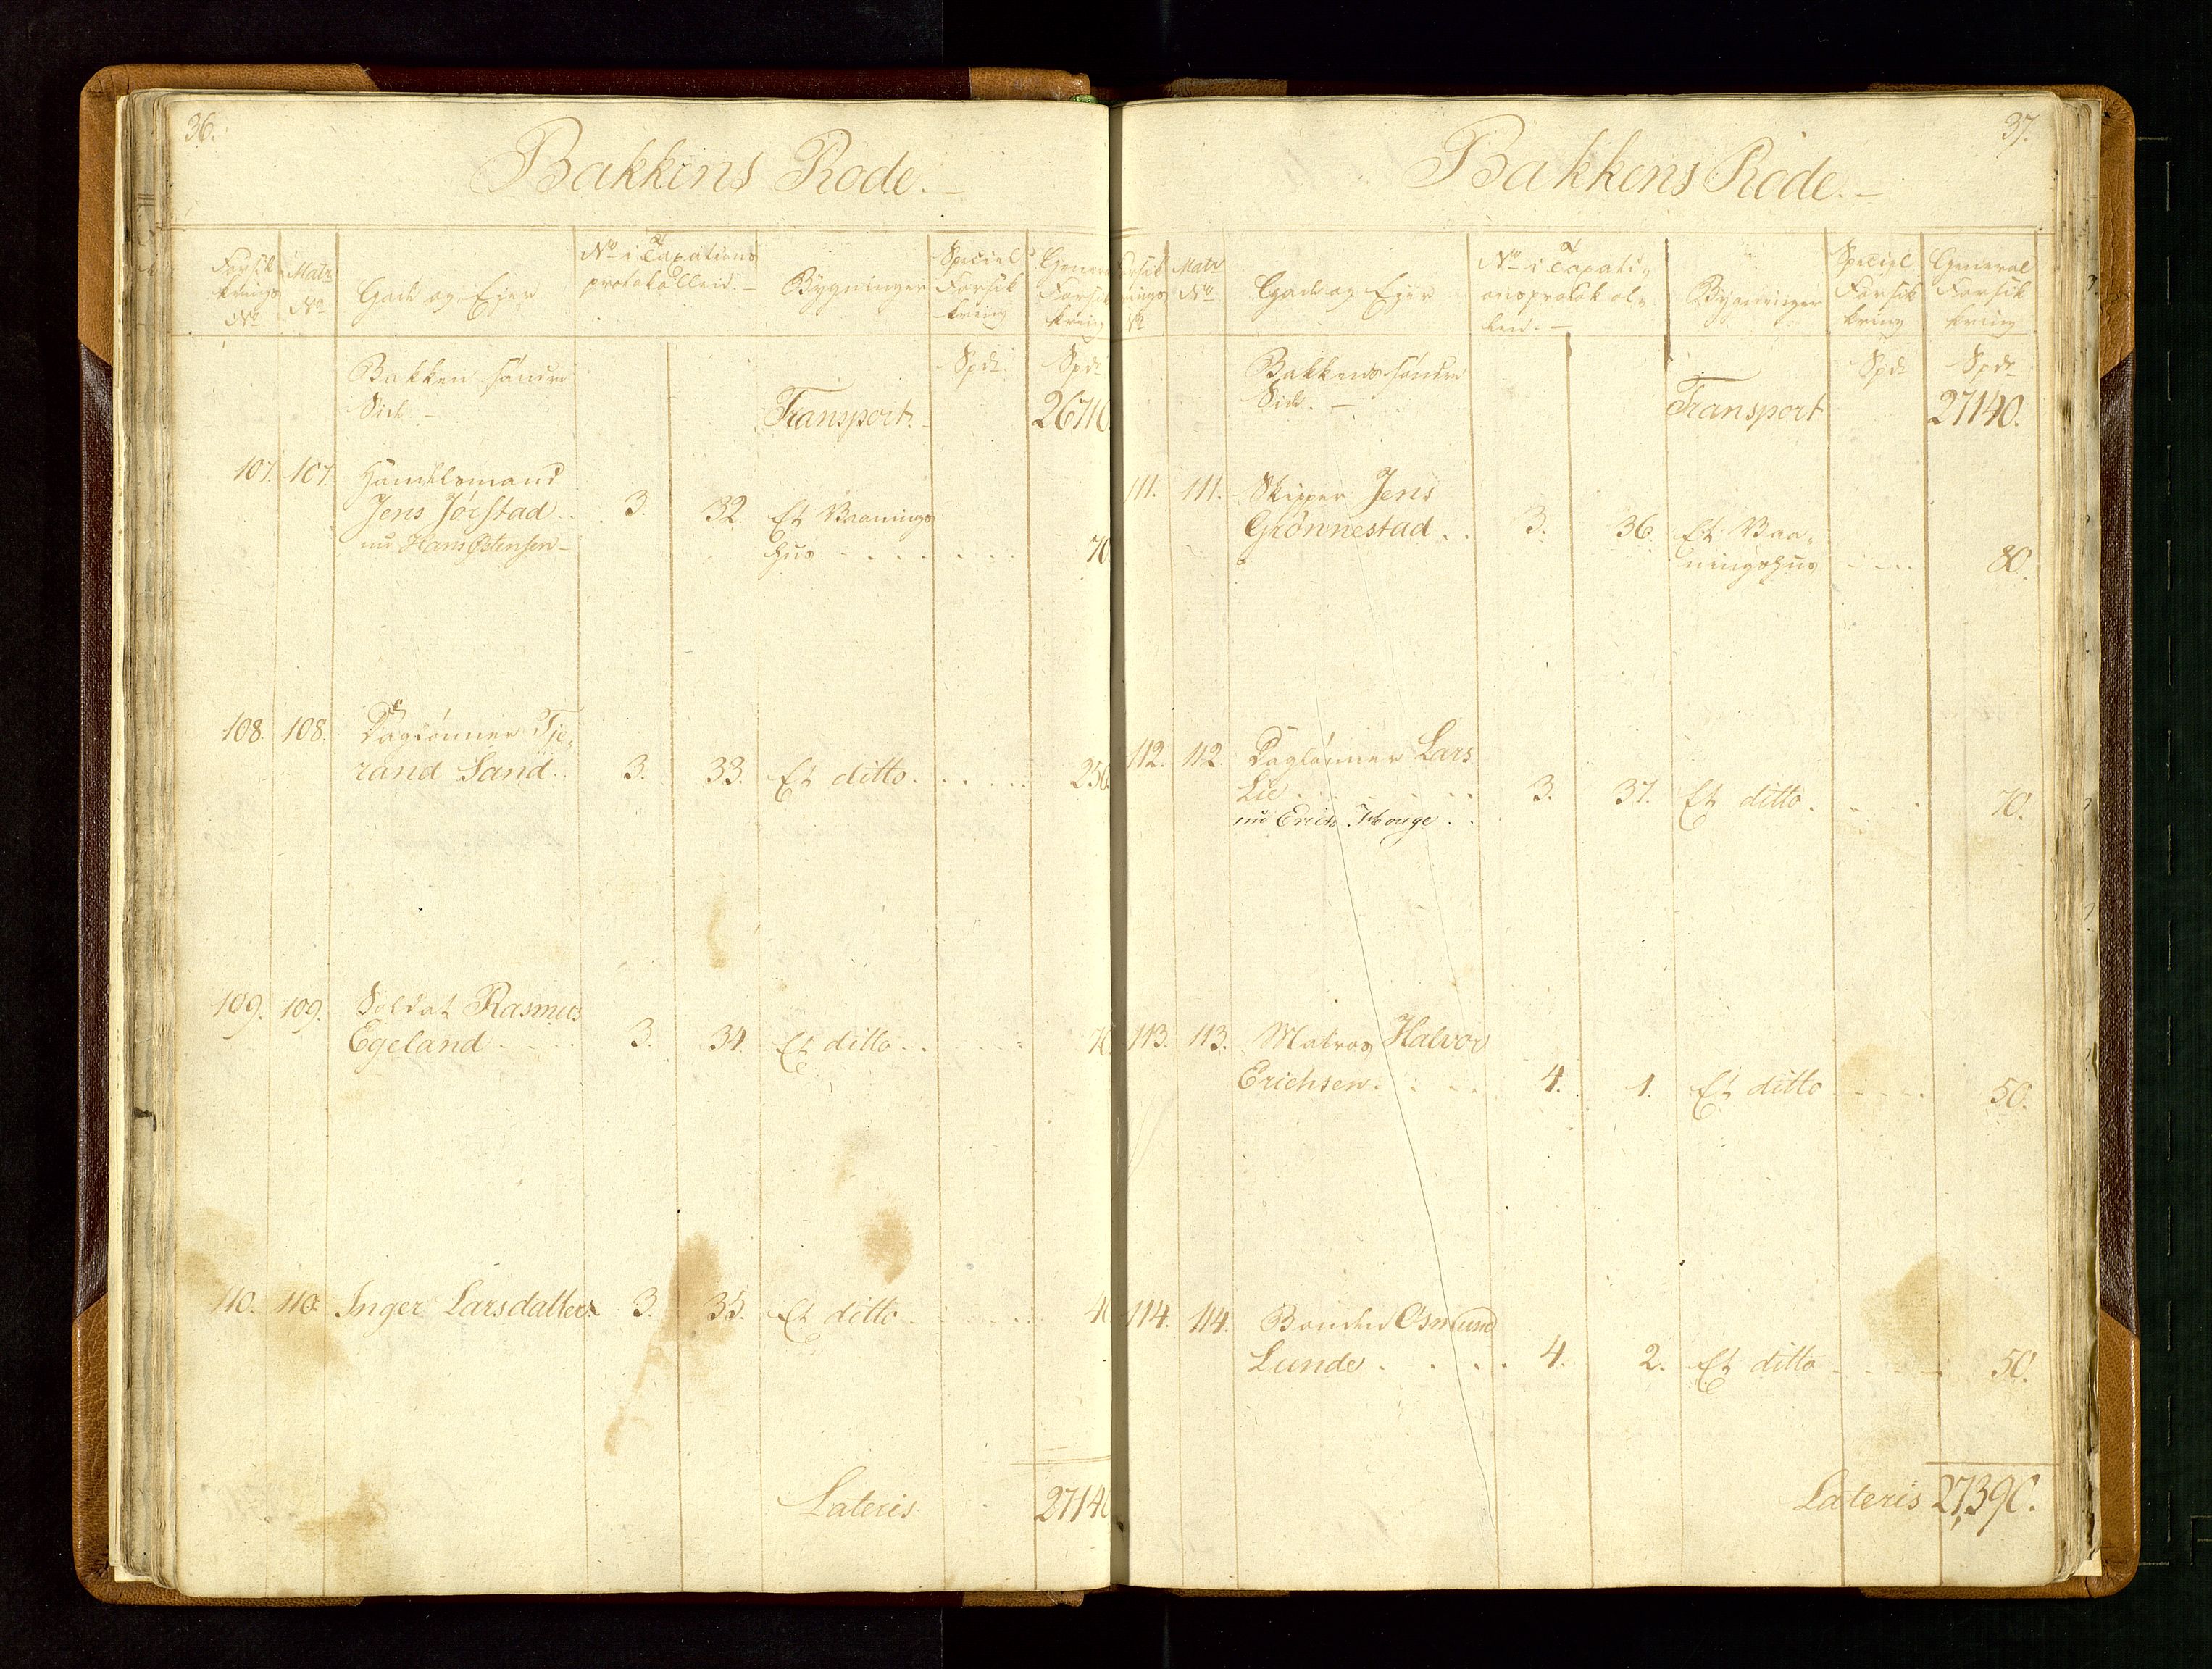 36.
Bakkens Rode.
Forsik
krings
No
Matr
No
Gade og Ejer
No i Taxations
protokollen.
Bygninger
Speciel
Forsik
kring
General
Forsik
kring
Bakken søndre
Side. -
Spdr
Spdr
Transport.
26710
107. 107. Handelsmand
Jens Jørstad . . 3. 32. Et Vaanings
nu Hans Østensen - hus . . . . 70.
108. 108. Daglønner Tje-
rand Sand. . 3. 33. Et ditto . . . . 250
109. 109. Soldat Rasmus
Egeland . . . 3. 34. Et ditto . . 70.
110. 110. Inger Larsdatter 3. 35. Et ditto . . . 40
Lateris 27140
37.
Bakkens Rode. -
Forsik
krings
No
Matr
No
Gade og Ejer
No i Taxati-
onsprotokol-
len. -
Bygninger
Speciel
Forsik
kring
General
Forsik
kring
Bakkens søndre
Side. -
Spdr
Spdr
Transport
27140.
111. 111. Skipper Jens
Grønnestad . . 3. 36. Et Vaa-
ningshus . . . 80.
112. 112. Daglønner Lars
Lie . . . . 3. 37. Et ditto . . . 70.
nu Erich Houge . .
113. 113. Matros Halvor
Erichsen . . . 4. 1. Et ditto . . . 50.
114. 114. Bonden Osmund
Lunde . . . . 4. 2. Et ditto . . . 50.
Lateris 27,390.